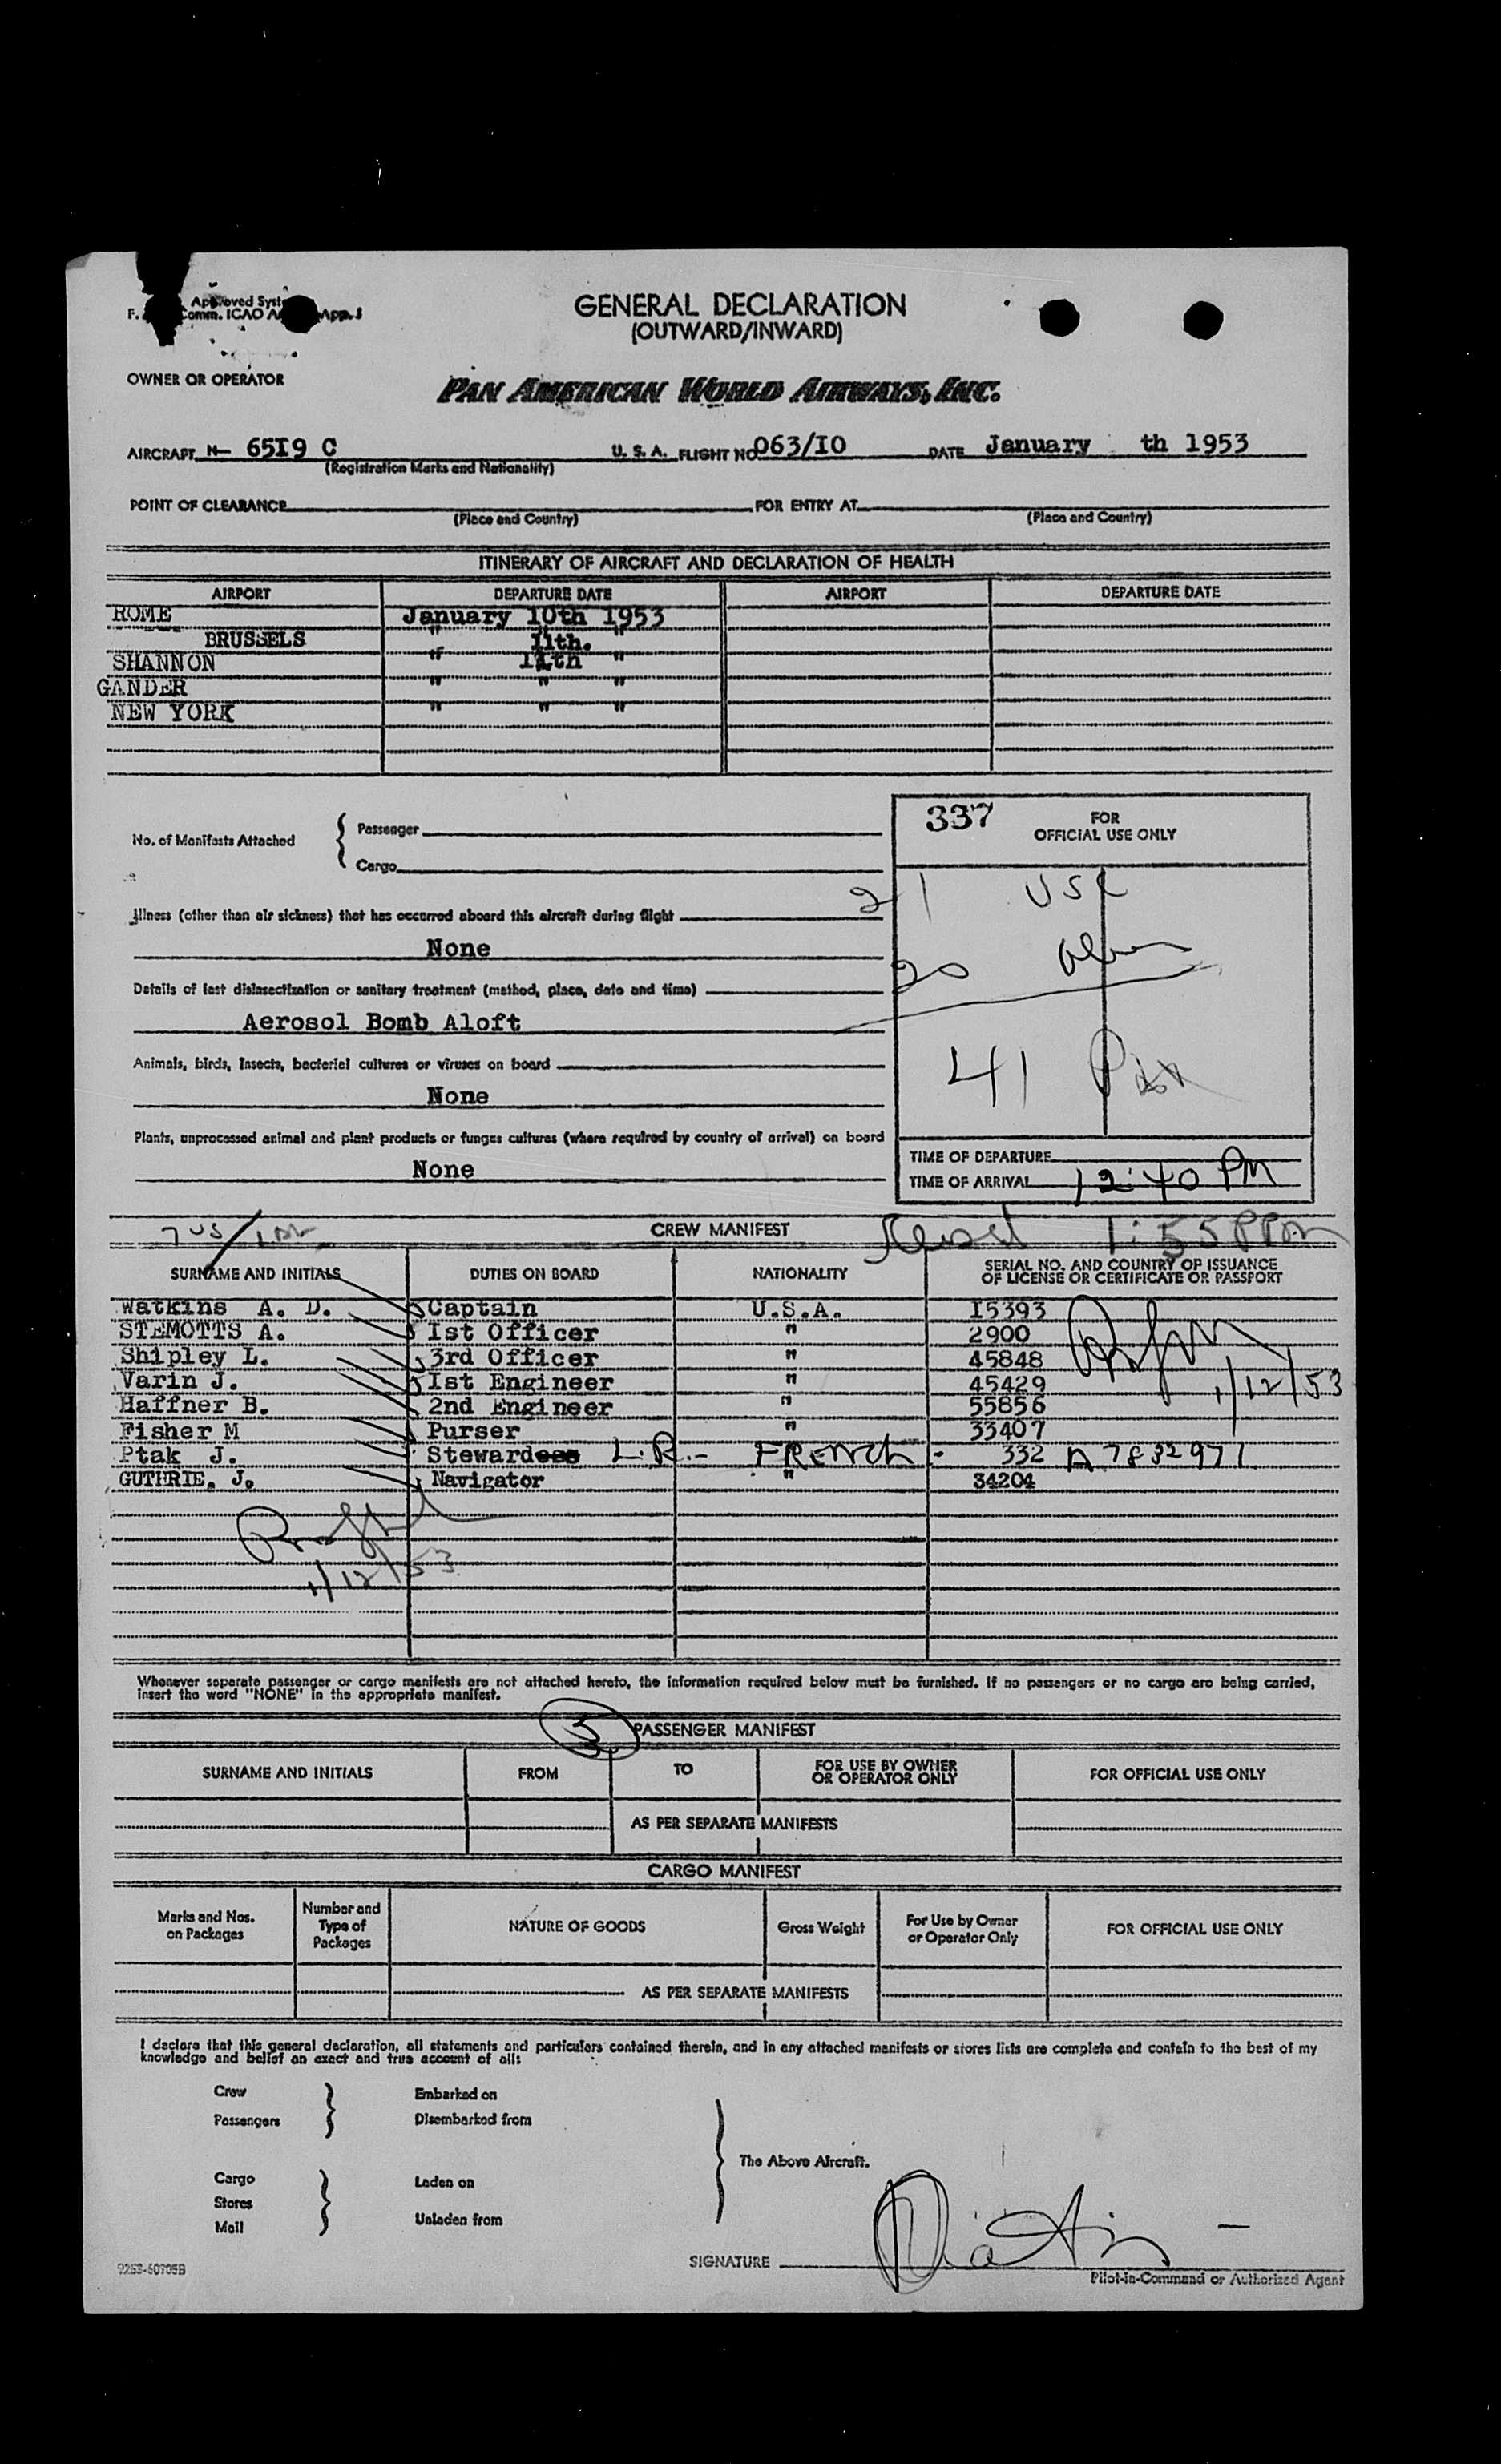 Approved Syst
F. Comm. ICAO A App. 3
GENERAL DECLARATION
(OUTWARD/INWARD)
OWNER OR OPERATOR
PAN AMERICAN WORLD AIRWAYS, INC.
AIRCRAFT N- 65I9 C U. S. A. FLIGHT NO 063/IO DATE January th 1953
(Registration Marks and Nationality)
POINT OF CLEARANCE FOR ENTRY AT
(Place and Country) (Place and Country)
ITINERARY OF AIRCRAFT AND DECLARATION OF HEALTH
AIRPORT DEPARTURE DATE AIRPORT DEPARTURE DATE
ROME January 10th 1953
BRUSSELS " 11th. "
SHANNON " 11th "
GANDER " " "
NEW YORK " " "
337 FOR
OFFICIAL USE ONLY
No. of Manifests Attached { Passenger
Cargo
21 USC
Illness (other than air sickness) that has occurred aboard this aircraft during flight
None
20
Details of last disinsectization or sanitary treatment (method, place, date and time)
Aerosol Bomb Aloft
Animals, birds, insects, bacterial cultures or viruses on board
41
None
Plants, unprocessed animal and plant products or fungus cultures (where required by country of arrival) on board
None
TIME OF DEPARTURE
TIME OF ARRIVAL 12:40 PM
7 US/
CREW MANIFEST
1:55 PPM
SURNAME AND INITIALS DUTIES ON BOARD NATIONALITY SERIAL NO. AND COUNTRY OF ISSUANCE
OF LICENSE OR CERTIFICATE OR PASSPORT
Watkins A. D. Captain U.S.A. I5393
STEMOTTS A. Ist Officer " 2900
Shipley L. 3rd Officer " 45848
Varin J. Ist Engineer " 45429
1/12/53
Haffner B. 2nd Engineer " 55856
Fisher M Purser " 33407
Ptak J. Stewardess L.R.- FRENCH - 332 A7832971
GUTHRIE. J. Navigator " 34204
1/12/53
Whenever separate passenger or cargo manifests are not attached hereto, the information required below must be furnished. If no passengers or no cargo are being carried,
insert the word "NONE" in the appropriate manifest.
PASSENGER MANIFEST
SURNAME AND INITIALS FROM TO FOR USE BY OWNER
OR OPERATOR ONLY FOR OFFICIAL USE ONLY
AS PER SEPARATE MANIFESTS
CARGO MANIFEST
Marks and Nos.
on Packages Number and
Type of
Packages NATURE OF GOODS Gross Weight For Use by Owner
or Operator Only FOR OFFICIAL USE ONLY
AS PER SEPARATE MANIFESTS
I declare that this general declaration, all statements and particulars contained therein, and in any attached manifests or stores lists are complete and contain to the best of my
knowledge and belief an exact and true account of all:
Crew Embarked on
Passengers Disembarked from
The Above Aircraft.
Cargo Laden on
Stores
Mail Unladen from
SIGNATURE
9253-60705B
Pilot-in-Command or Authorized Agent